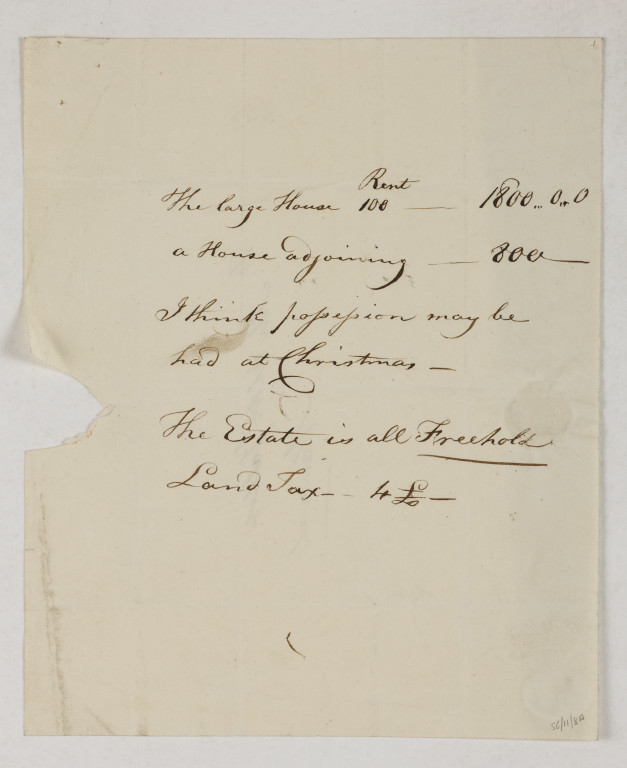 Rent
The large House 100 — 1800 .. 0 .. 0
a House adjoining — 800 —
I think possession may be
had at Christmas —
The Estate is all Freehold
Land Tax - - 4 £ —